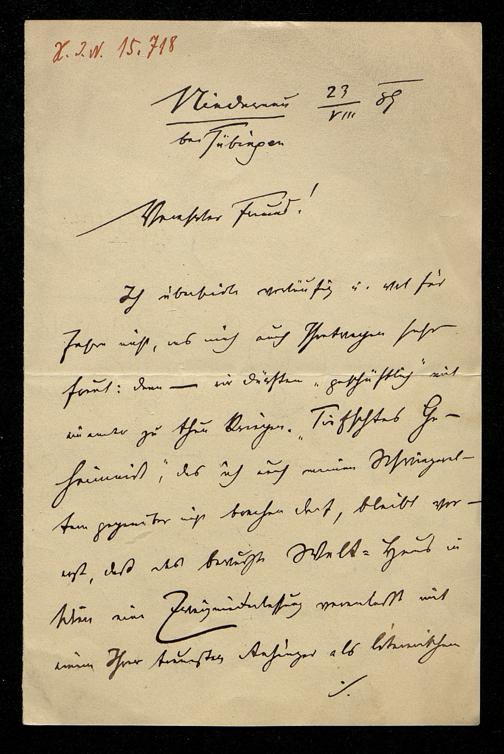 H. I. N. 15.718
Niedernau 23/VIII 89
bei Tübingen
Verehrter Freund!
Ich übersiedle vorläufig u. wol für
Jahre nicht, was mich auch Ihretwegen sehr
freut: denn — wir dürften „geschäftlich" mit
einander zu thun kriegen. „Tiefstes Ge-
heimniß", das ich auch meinen
gegenüber nicht brechen darf, bleibt vor-
erst, daß das bewußte Welt-Haus in
Wien eine Zweigniederlassung veranlaßt mit
einem Ihrer treuesten Anhänger als literarischen
./.